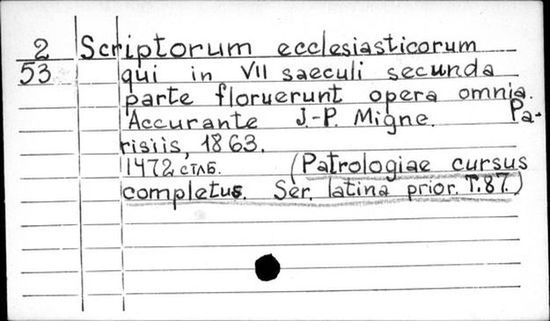 2 Scriptorum ecclesiasticorum
53 qui in VII saeculi secunda
parte floruerunt opera omnia.
Accurante J.-P. Migne. Pa-
risiis, 1863.
1472 стлб. (Patrologiae cursus
completus. Ser. latina prior. T.87.)